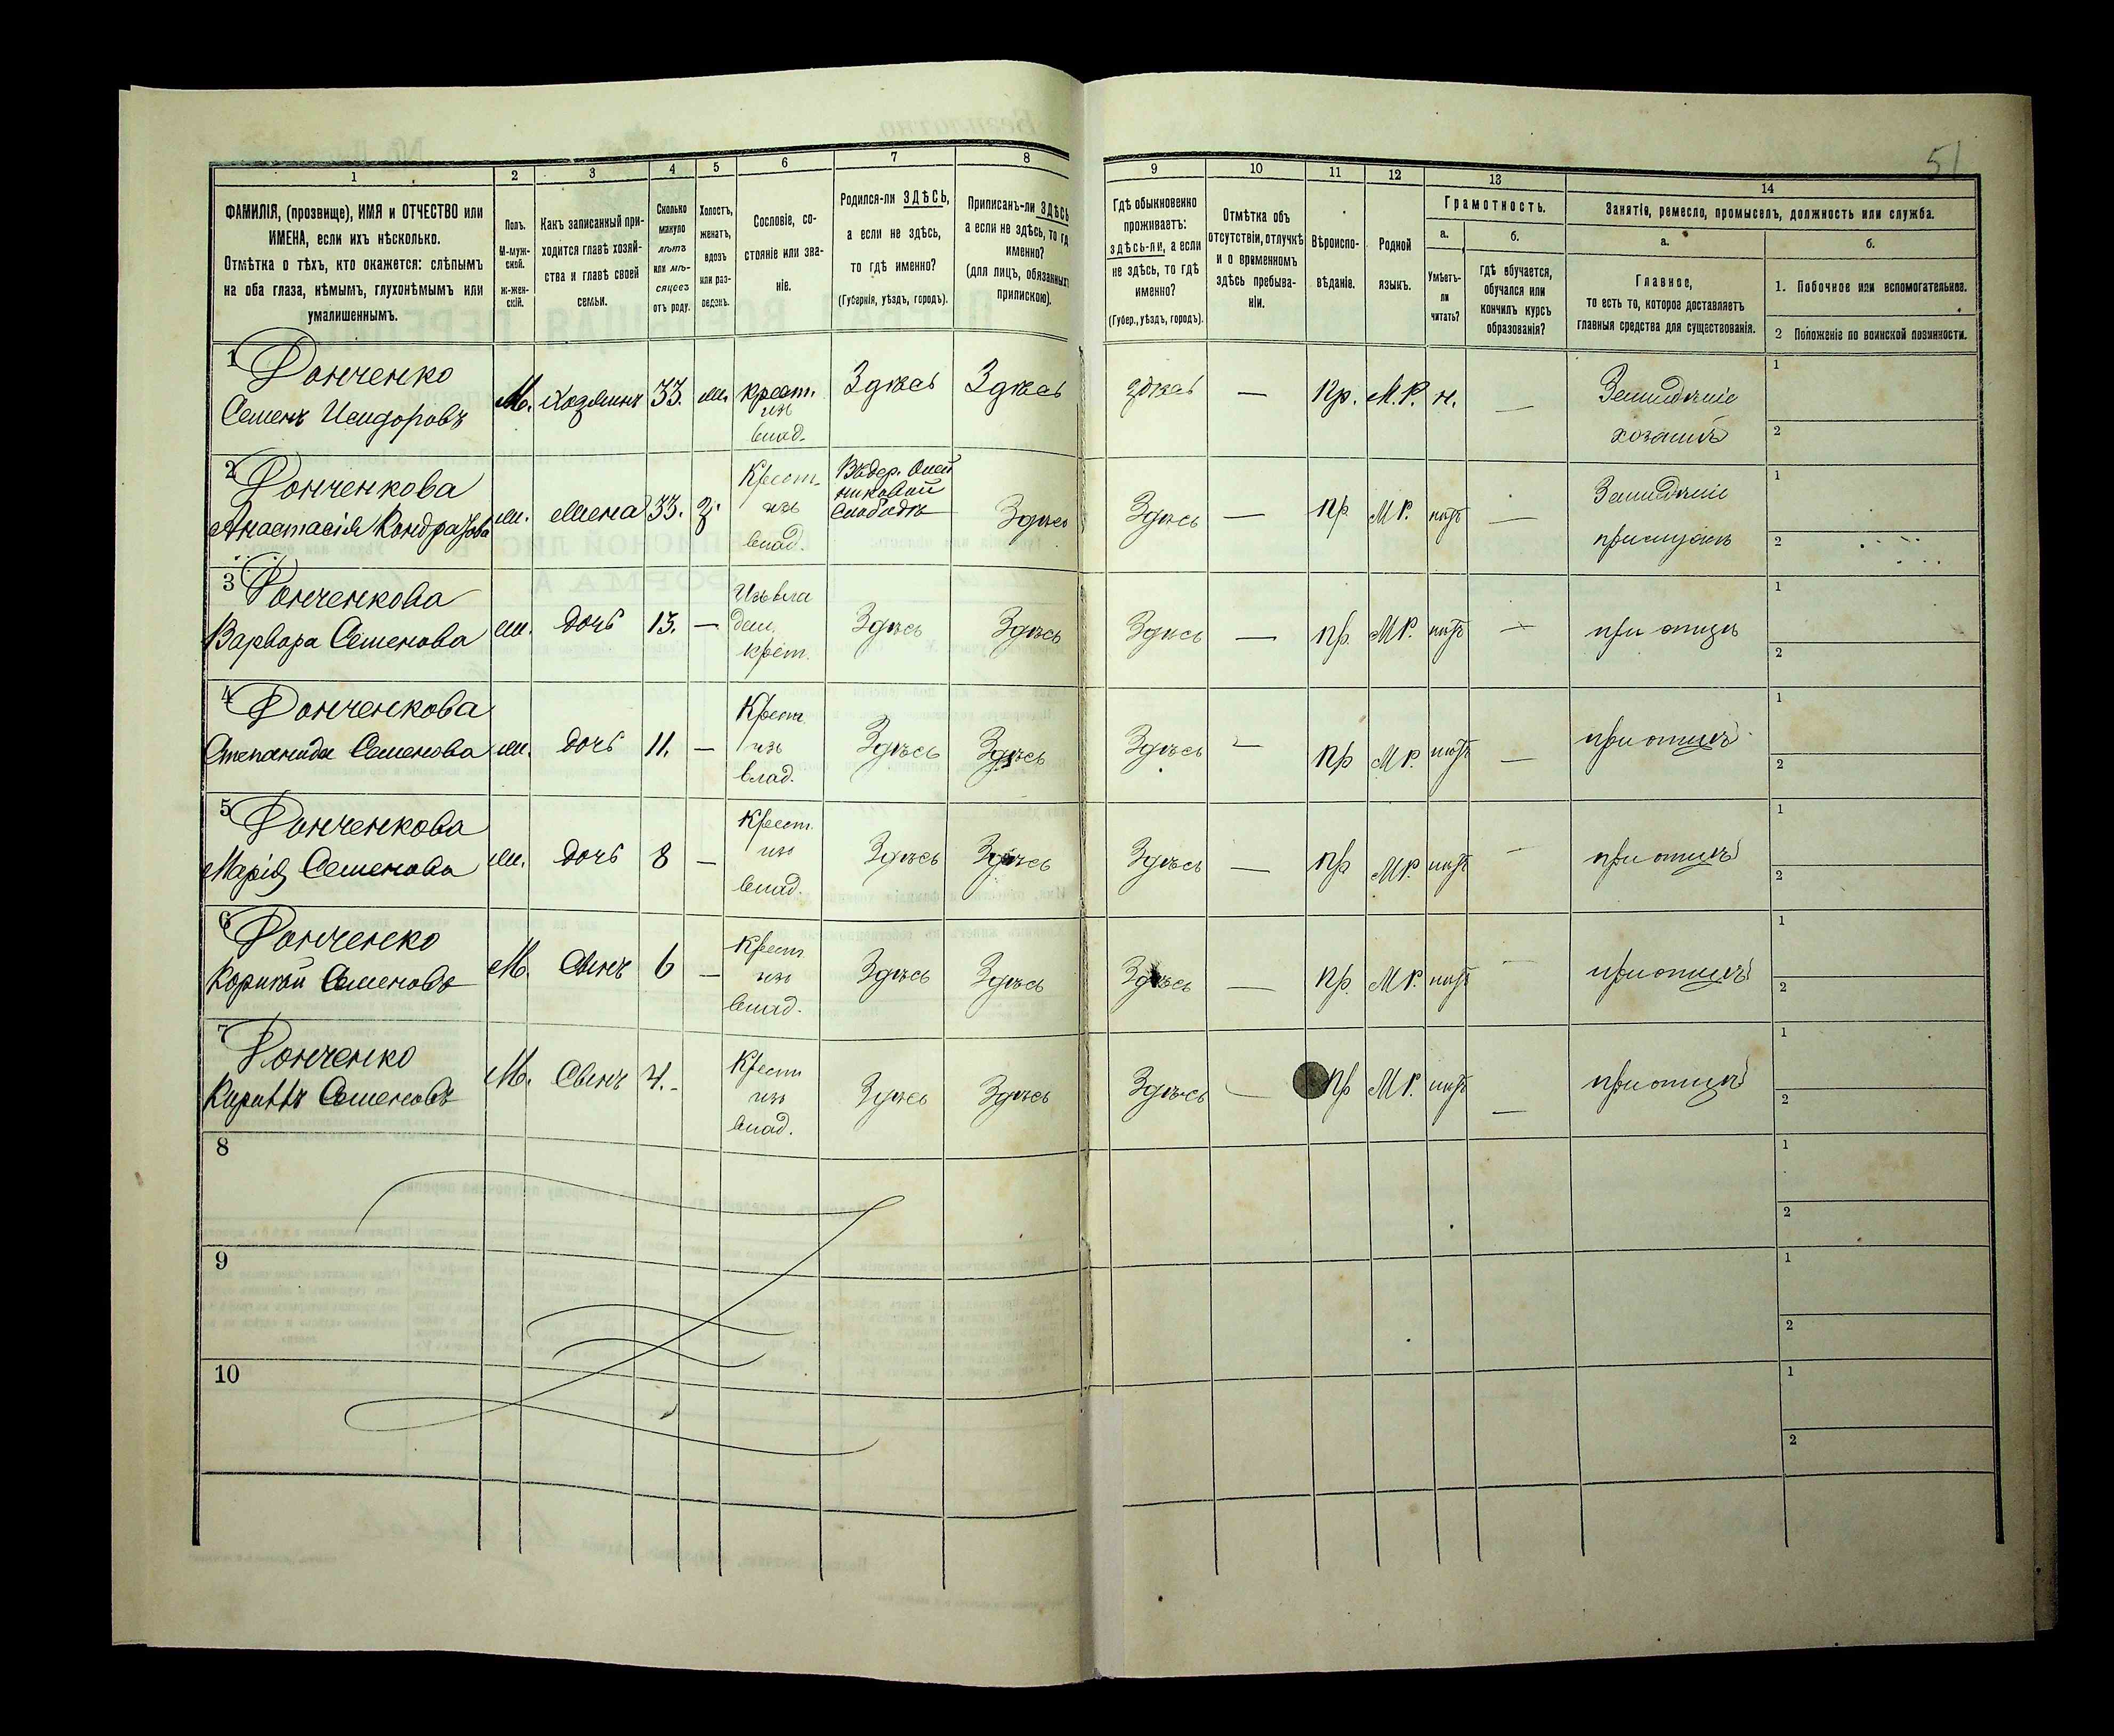 51
1
2
3
4
5
6
7
8
9
10
11
12
13
14
ФАМИЛІЯ, (прозвище), ИМЯ и ОТЧЕСТВО или
ИМЕНА, если ихъ нѣсколько.
Отмѣтка о тѣхъ, кто окажется: слѣпымъ
на оба глаза, нѣмымъ, глухонѣмымъ или
умалишеннымъ.
Полъ.
М-муж-
ской.
Ж-жен-
скій.
Какъ записанный при-
ходится главѣ хозяй-
ства и главѣ своей
семьи.
Сколько
минуло
лѣтъ
или мѣ-
сяцевъ
отъ роду.
Холостъ,
женатъ,
вдовъ
или раз-
веденъ.
Сословіе, со-
стояніе или зва-
ніе.
Родился-ли ЗДѢСЬ,
а если не здѣсь,
то гдѣ именно?
(Губернія, уѣздъ, городъ).
Приписанъ-ли ЗДѢСЬ
а если не здѣсь, то гд
именно?
(для лицъ, обязанных
припискою).
Гдѣ обыкновенно
проживаетъ:
здѣсь-ли, а если
не здѣсь, то гдѣ
именно?
(Губер., уѣздъ, городъ).
Отмѣтка объ
отсутствіи, отлучкѣ
и о временномъ
здѣсь пребыва-
ніи.
Вѣроиспо-
вѣданіе.
Родной
языкъ.
Грамотность.
а.
б.
Умѣетъ-
ли
читать?
гдѣ обучается,
обучался или
кончилъ курсъ
образованія?
Занятіе, ремесло, промыселъ, должность или служба.
а.
б.
Главное,
то есть то, которое доставляетъ
главныя средства для существованія.
1. Побочное или вспомогательное.
2 Положеніе по воинской повинности.
1 Донченко
Семенъ Исидоровъ
М. Хозяинъ 33. ж. Крест. изъ влад. Здѣсь Здѣсь здѣсь — Пр. М.Р. н. — Земледѣліе хозяинъ 1 2
2 Донченкова
Анастасія Кондратова
ж. Жена 33. з. Крест. изъ влад.
слободѣ Здѣсь Здѣсь — пр. М Р. нѣтъ — Земледѣліе при мужѣ 1 2
3 Донченкова
Варвара Семенова
ж. Дочь 15. — Изъ вла дел. крест. Здѣсь Здѣсь Здѣсь — пр. М Р. нѣтъ — при отцѣ 1 2
4 Донченкова
Степанида Семенова
ж. Дочь 11. — Крест. изъ влад. Здѣсь Здѣсь Здѣсь — пр М Р. нѣтъ — при отцѣ 1 2
5 Донченкова
Марія Семенова
ж. Дочь 8 — Крест. изъ влад. Здѣсь Здѣсь Здѣсь — пр М Р. нѣтъ — при отцѣ 1 2
6 Донченко
Корнѣй Семеновъ
М. Сынъ 6 — Крест. изъ влад. Здѣсь Здѣсь Здѣсь — пр. М Р. нѣтъ — при отцѣ 1 2
7 Донченко
Семеновъ
М. Сынъ 4. — Крест. изъ влад. Здѣсь Здѣсь Здѣсь — пр М Р. нѣтъ — при отцѣ 1 2
8 1 2
9 1 2
10 1 2